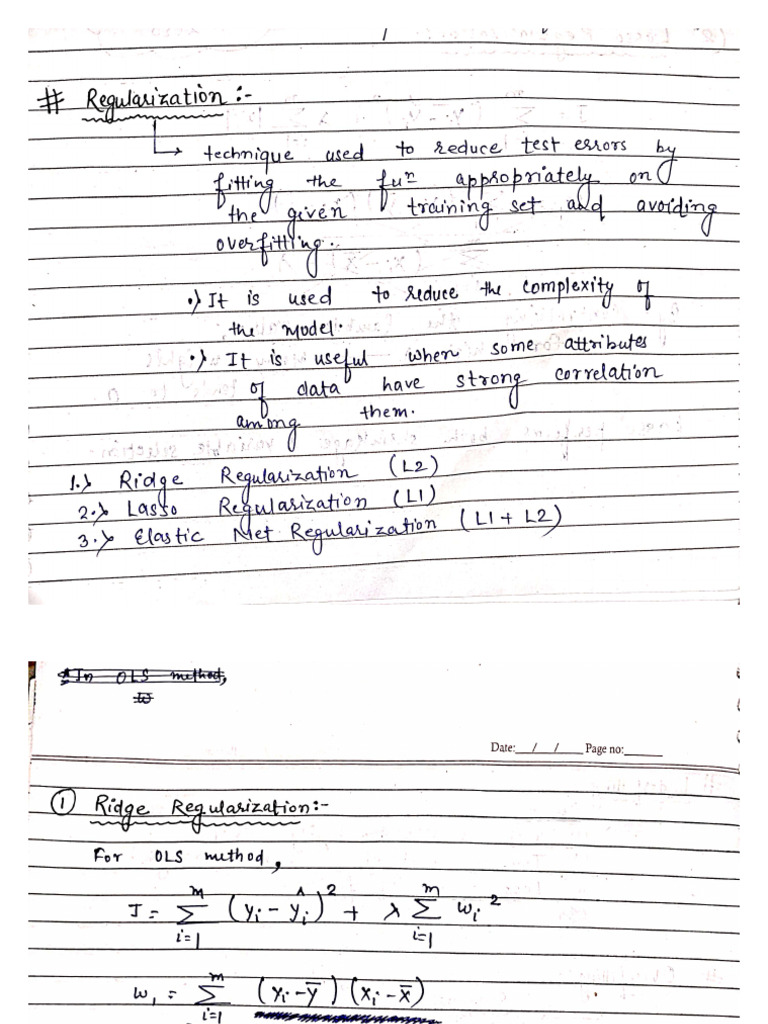 # Regularization :-
↳ technique used to reduce test errors by
fitting the fuⁿ appropriately on
the given training set and avoiding
overfitting.
•) It is used to reduce the complexity of
the model.
•) It is useful when some attributes
of data have strong correlation
among them.
1.) Ridge Regularization (L2)
2.) Lasso Regularization (L1)
3.) Elastic Net Regularization (L1 + L2)
* In OLS method,
Date:__/__/____ Page no:______
① Ridge Regularization :-
For OLS method,
J = Σᵢ₌₁ᵐ (yᵢ - ŷᵢ)² + λ Σᵢ₌₁ᵐ wᵢ²
w₁ = Σᵢ₌₁ᵐ (yᵢ - ȳ) (xᵢ - x̄)